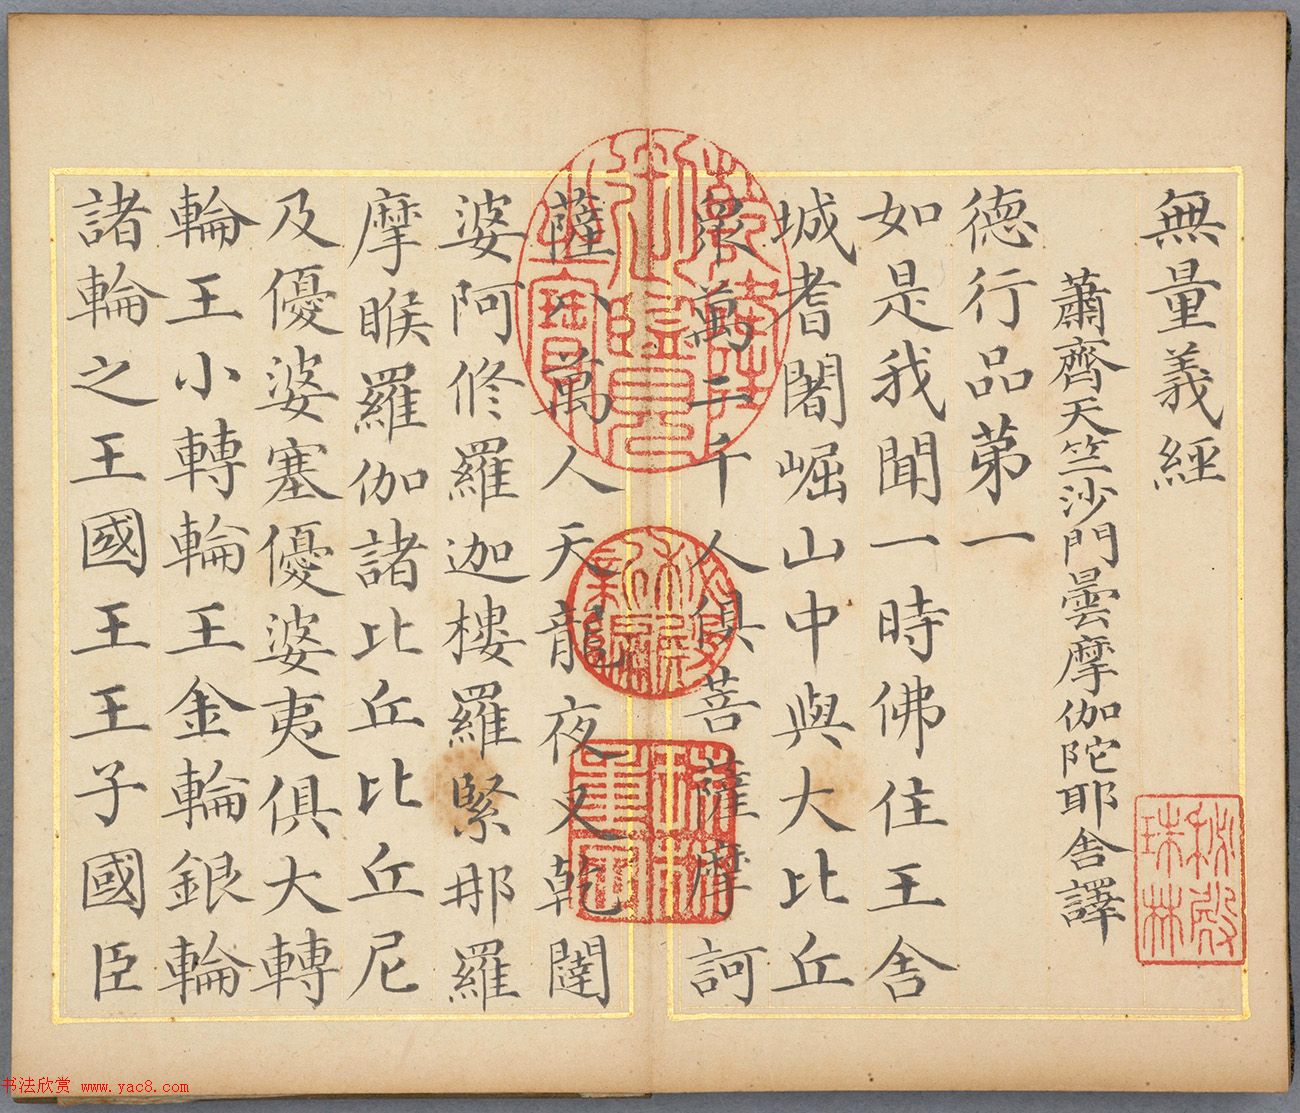 無量義經
蕭齊天竺沙門曇摩伽陀耶舍譯
德行品第一
如是我聞一時佛住王舍
城耆闍崛山中與大比丘
眾萬二千人俱菩薩摩訶
薩八萬人天龍夜叉乾闥
婆阿修羅迦樓羅緊那羅
摩睺羅伽諸比丘比丘尼
及優婆塞優婆夷俱大轉
輪王小轉輪王金輪銀輪
諸輪之王國王王子國臣
秘殿珠林
书法欣赏 www.yac8.com